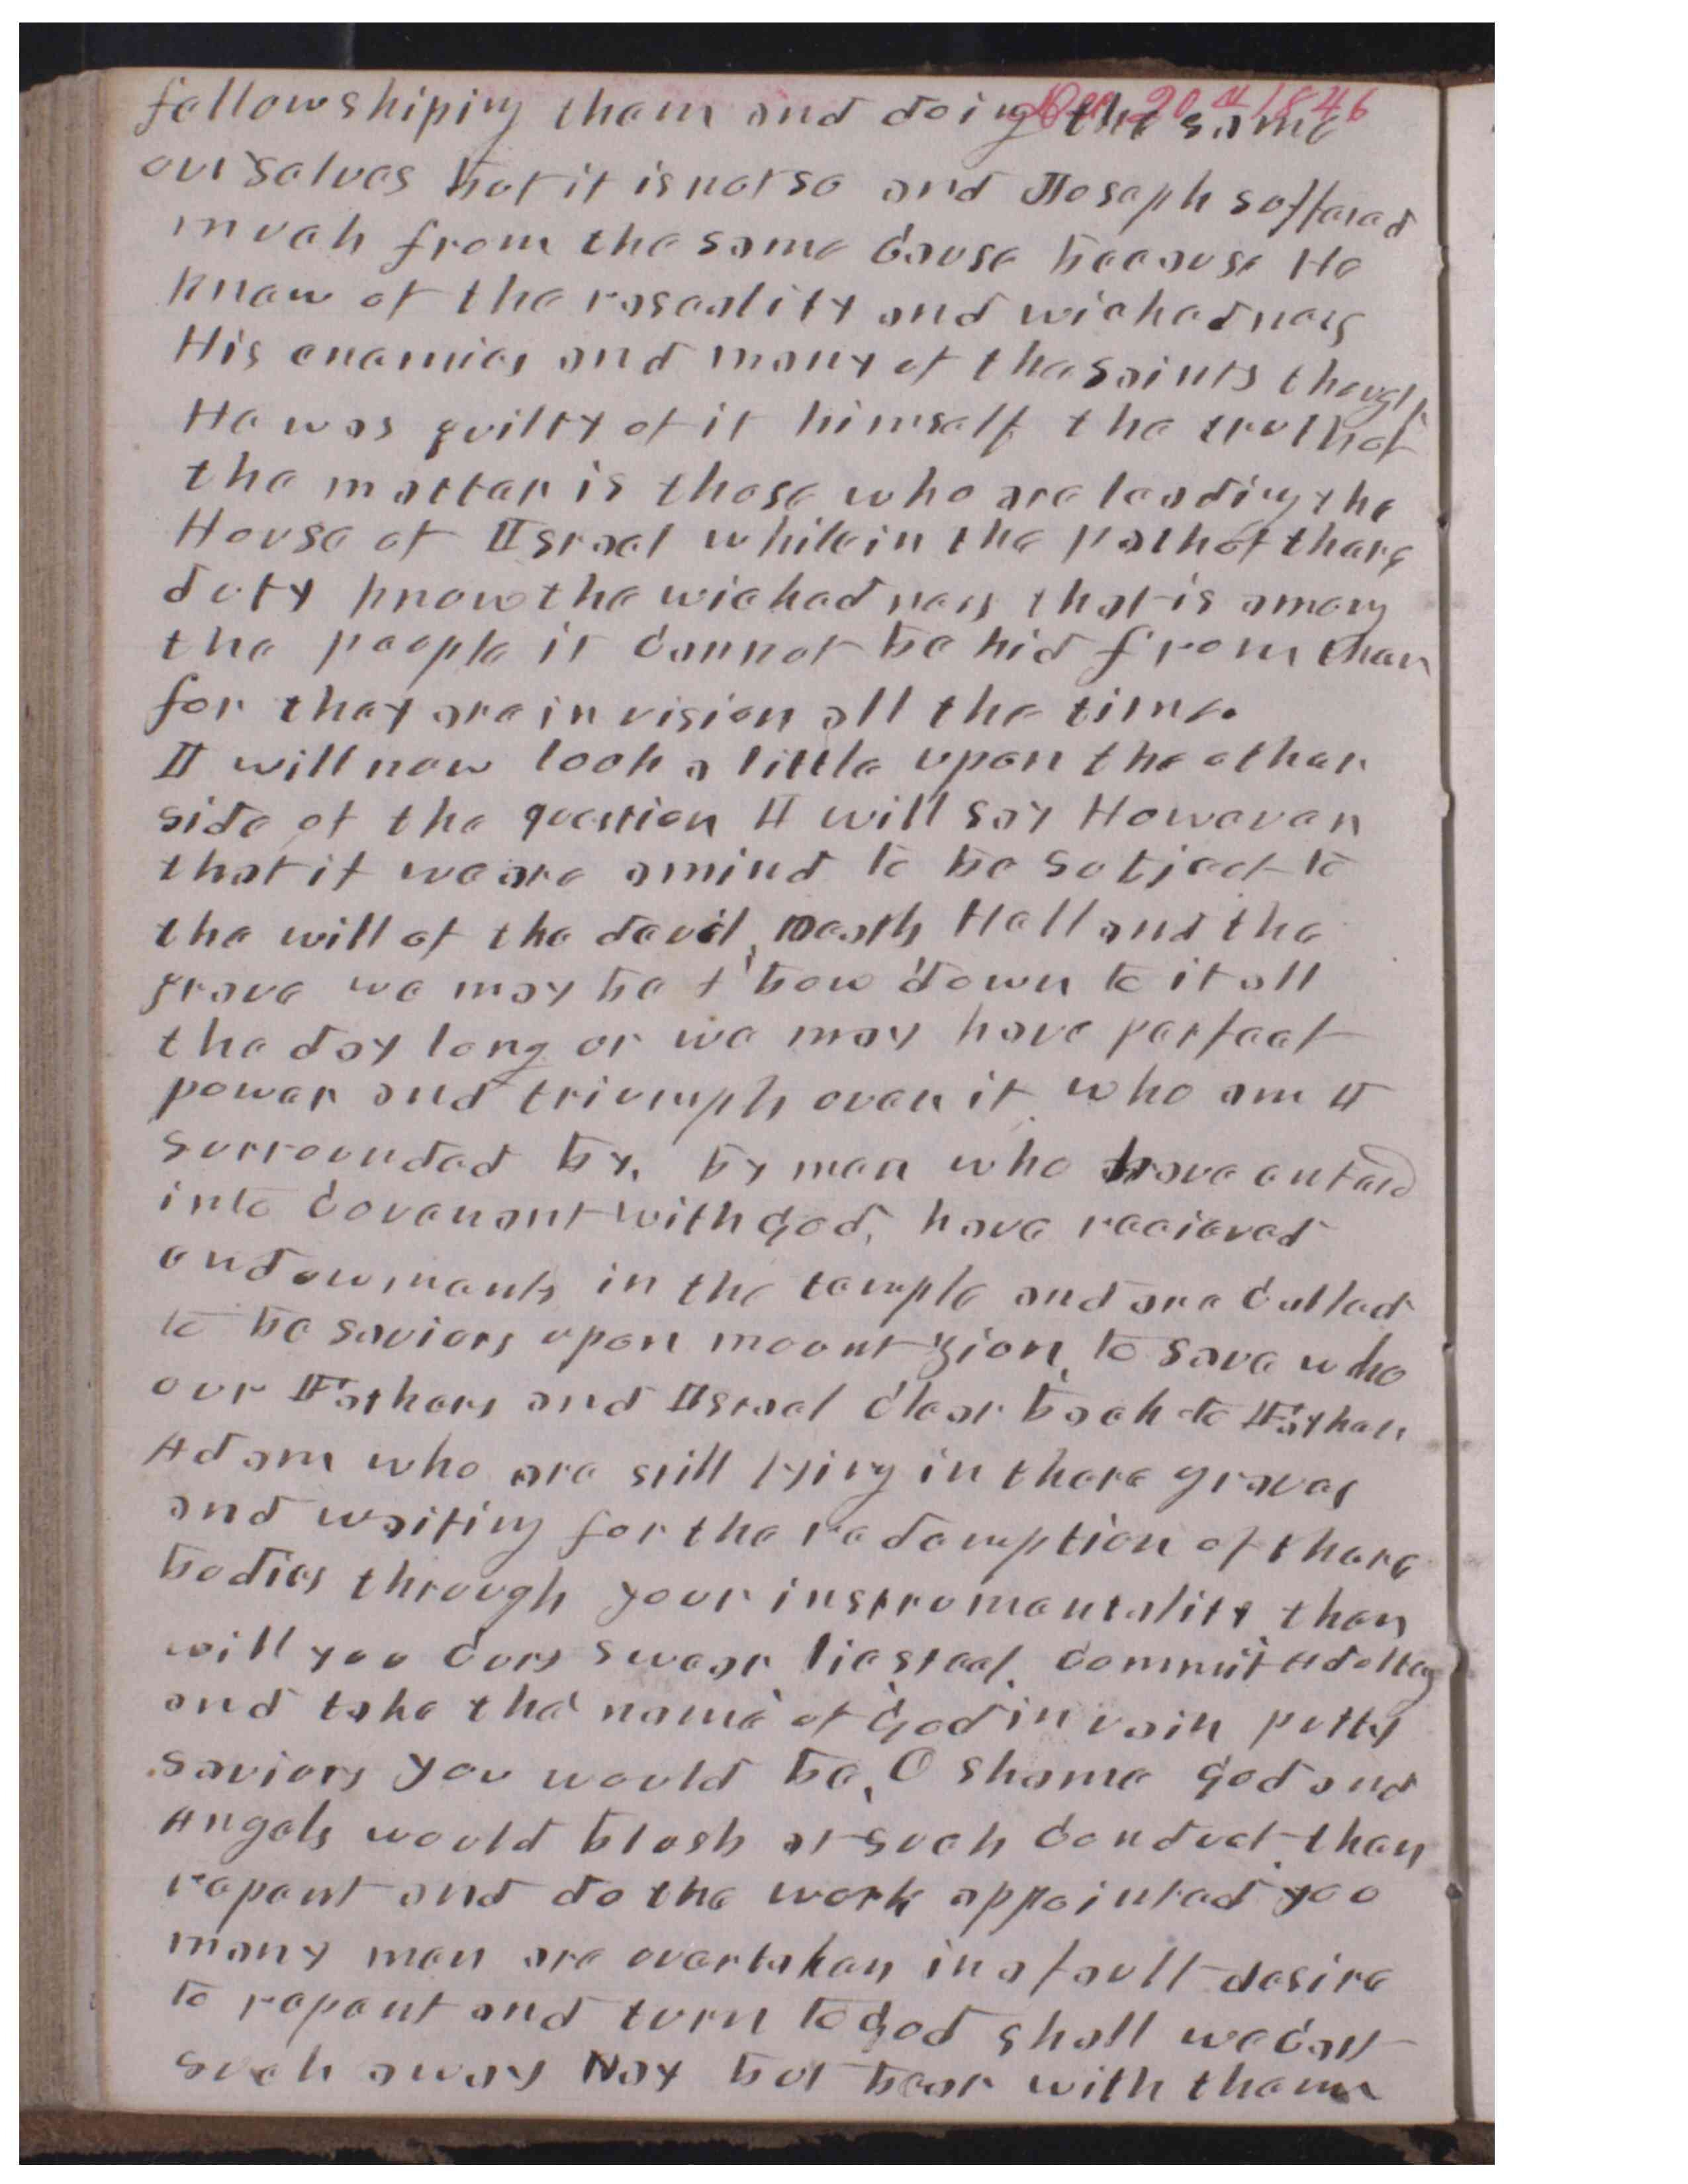 Dec 20th 1846
fellowshiping them and doing the same
ourselves but it is not so and Joseph suffered
much from the same cause because He
knew of the rascality and wickedness
His enemies and many of the Saints thought
He was guilty of it himself the truth of
the matter is those who are leading the
House of Israel while in the path of there
duty know the wickedness that is among
the people it cannot be hid from them
for they are in vision all the time.
I will now look a little upon the other
side of the question I will say However
that if we are amind to be subject to
the will of the devil, Death Hell and the
grave we may be & bow down to it all
the day long or we may have perfect
power and triumph over it who am I
surrounded by, by men who have entered
into covenant with god, have recieved
endowments in the temple and are called
to be saviors upon mount zion, to save who
our Fathers and Israel clear back to Father
Adam who are still lying in there graves
and waiting for the redemption of there
bodies through your instrumentality, then
will you curs swear lie steal, commit Adultery
and take the name of God in vain petty
saviors you would be, O shame god and
Angels would blush at such conduct, then
repent and do the work appointed you
many men are overtaken in a fault desire
to repent and turn to God shall we cast
such away Nay but bear with them